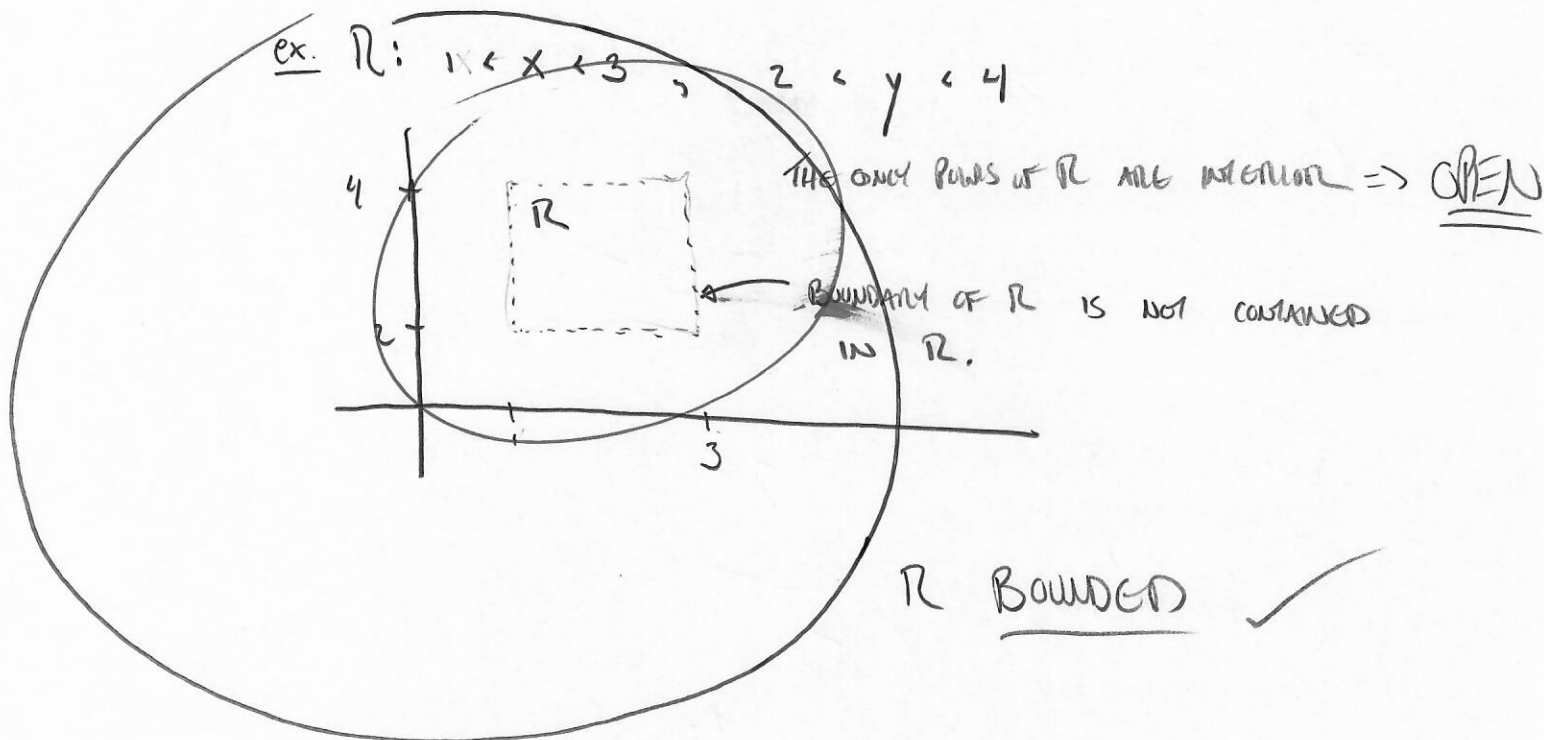 ex. R: 1 < x < 3 , 2 < y < 4
4
R
THE ONLY POINTS OF R ARE INTERIOR => OPEN
BOUNDARY OF R IS NOT CONTAINED
IN R.
2
3
R BOUNDED ✓